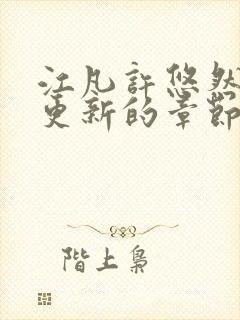 江凡許悠然
更新的章節
階上梟